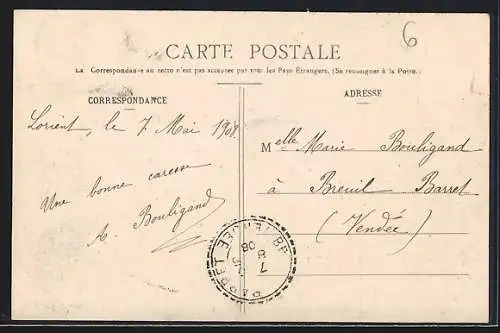 6
CARTE POSTALE
La Correspondance au recto n'est pas acceptée par tous les Pays Étrangers. (Se renseigner à la Poste.)
CORRESPONDANCE
ADRESSE
Lorient, le 7 Mai 1908.
Une bonne caresse
A. Bouligand
Melle Marie Bouligand
à Breuil Barret
(Vendée)
BARRET
7
08